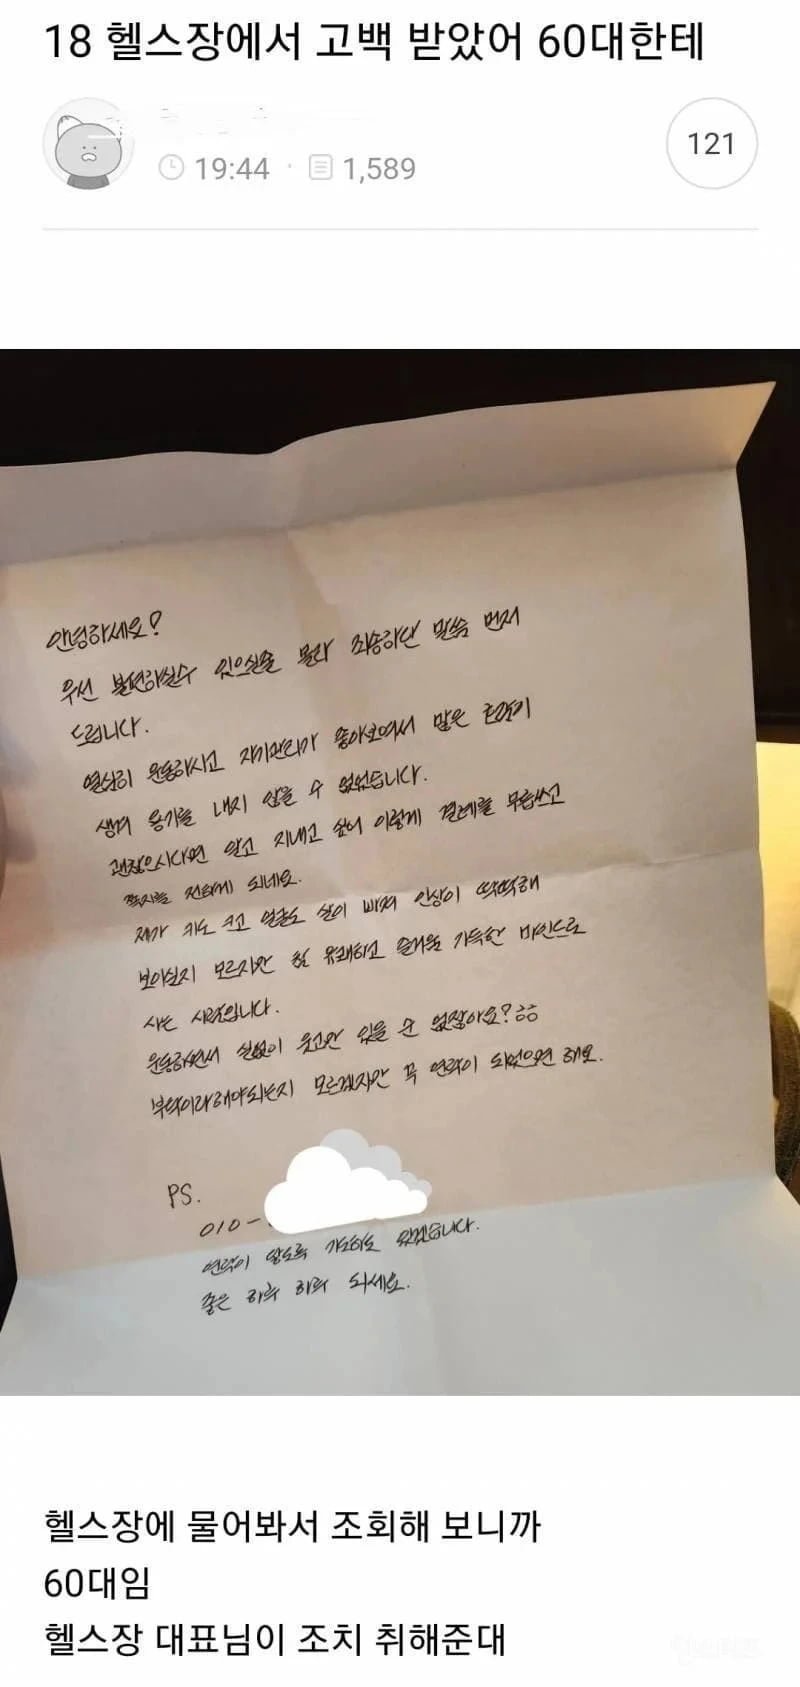 18 헬스장에서 고백 받았어 60대한테
19:44 · 1,589
121
안녕하세요?
우선 불편하실수 있으실줄 몰라 죄송하단 말씀 먼저
드립니다.
열심히 운동하시고 자기관리가 좋아보여서 많은 호감이
생겨 용기를 내지 않을 수 없었습니다.
괜찮으시다면 알고 지내고 싶어 이렇게 결례를 무릅쓰고
쪽지를 전하게 되네요.
제가 키도 크고 얼굴도 살이 빠져 인상이 딱딱해
보이실지 모르지만 참 유쾌하고 즐거움 가득한 마인드로
사는 사람입니다.
운동하면서 실없이 웃고만 있을 순 없잖아요?ㅎㅎ
부탁이라해야되는지 모르겠지만 꼭 연락이 되었으면 해요.
PS.
010-
연락이 오도록 기도하고 있겠습니다.
좋은 하루 하루 되세요.
헬스장에 물어봐서 조회해 보니까
60대임
헬스장 대표님이 조치 취해준대